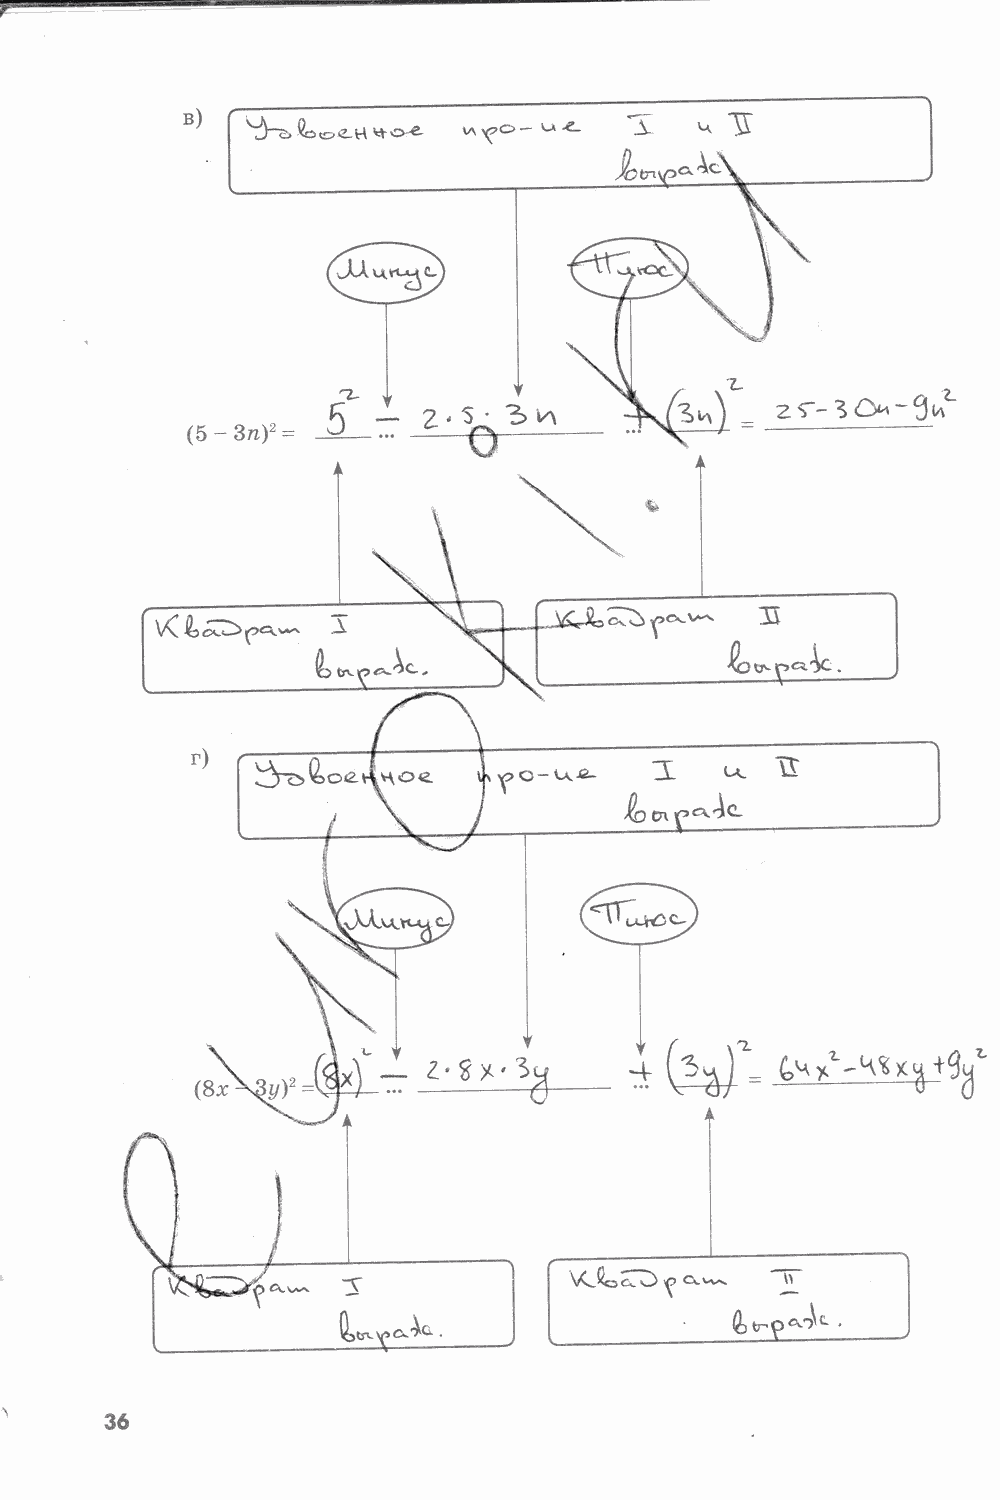 в)
Удвоенное про-ие I и II
выраж.
Минус Плюс
(5 − 3n)² = 5² − 2·5·3n + (3n)² = 25-30n-9n²
... ...
Квадрат I Квадрат II
выраж. выраж.
г)
Удвоенное про-ие I и II
выраж
Минус Плюс
(8x − 3y)² = (8x)² − 2·8x·3y + (3y)² = 64x²-48xy+9y²
... ...
Квадрат I Квадрат II
выраж. выраж.
36